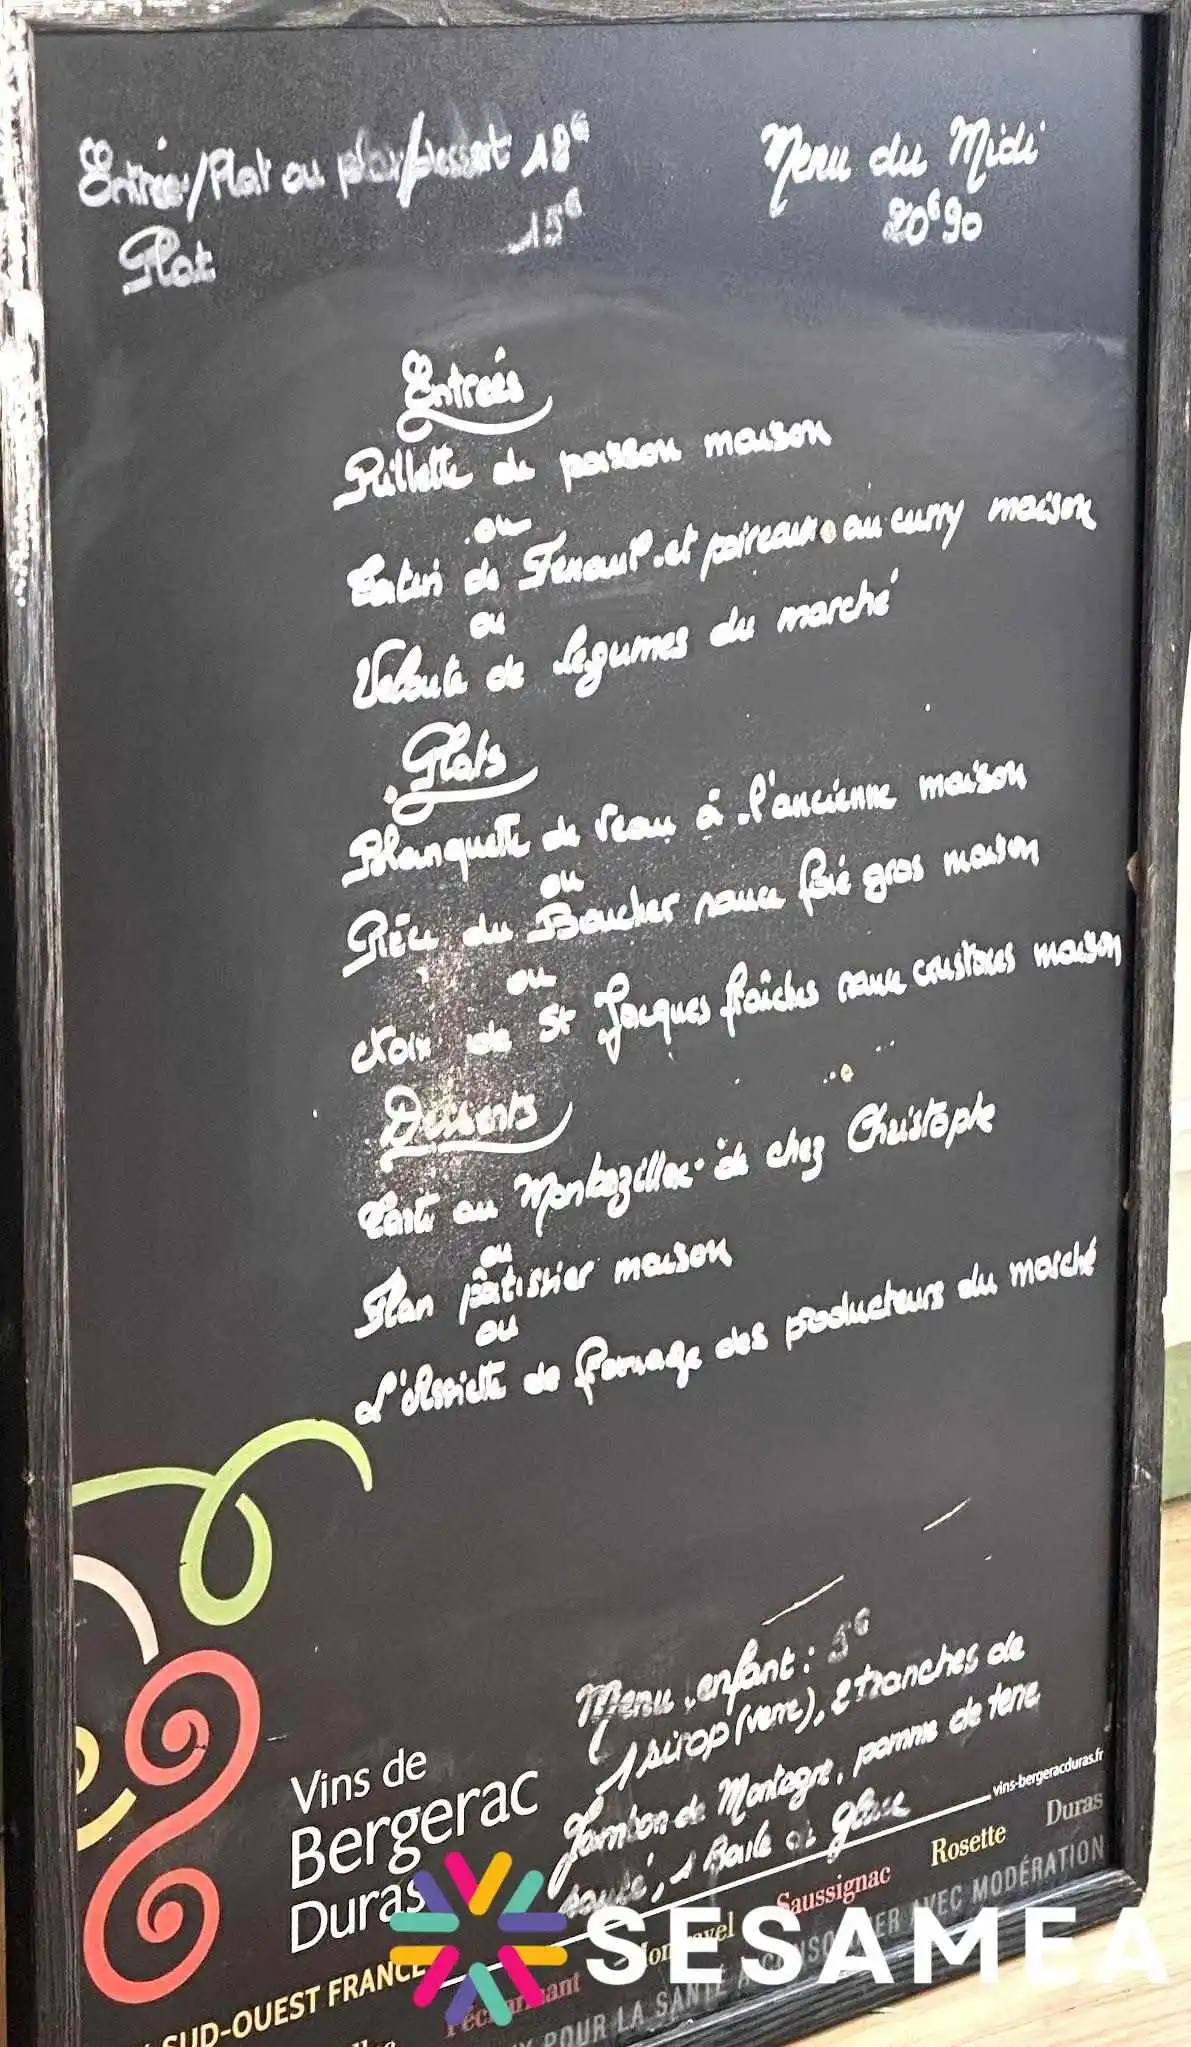 Entrée/Plat ou plat/dessert 18€
Plat 15€
Menu du Midi
20€90
Entrées
Rillette de poisson maison
ou
de et poireaux au curry maison
ou
Velouté de légumes du marché
Plats
Blanquette de Veau à l'ancienne maison
ou
Pièce du Boucher sauce foie gras maison
ou
Noix de St Jacques fraîches sauce crustacés maison
Desserts
Tarte au Monbazillac de chez Christophe
ou
Flan pâtissier maison
ou
L'Assiette de fromage des producteurs du marché
Menu enfant : 5€
1 sirop (verre), 2 tranches de
Jambon de Montagne, pomme de terre
sauté, 1 Boule de glace
Vins de
Bergerac
Duras
vins-bergeracduras.fr
SUD-OUEST FRANCE
Saussignac Rosette Duras
POUR LA SANTÉ AVEC MODÉRATION
SESAMEA